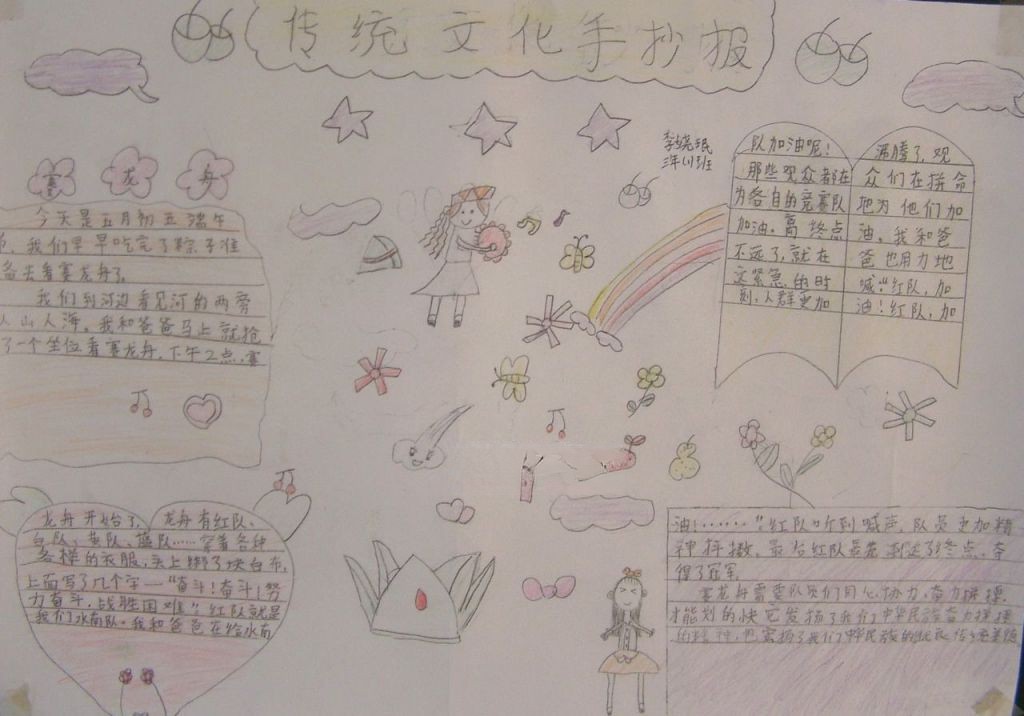 传统文化手抄报
李晓珉
三年(1)班
赛龙舟
今天是五月初五端午
节,我们早早吃完了粽子准
备去看赛龙舟了。
我们到河边看见河的两旁
人山人海。我和爸爸马上就抢
了一个坐位看赛龙舟,下午2点,赛
龙舟开始了,龙舟有红队、
白队、黄队、蓝队……穿着各种
各样的衣服,头上绑了块白布,
上面写了几个字—“奋斗!奋斗!努
力奋斗,战胜困难”红队就是
我们水南队。我和爸爸在给水南
队加油呢!
那些观众都在
为各自的竞赛队
加油。离终点
不远了,就在
这紧急的时
刻,人群更加
沸腾了,观
众们在拼命
地为他们加
油。我和爸
爸也用力地
喊“红队,加
油!红队,加
油!……”红队听到喊声,队员更加精
神抖擞。最后红队最先到达了终点,夺
得了冠军。
赛龙舟需要队员们同心协力,奋力拼搏,
才能划的快它发扬了我们中华民族奋力拼搏
的精神,也宣扬了我们中华民族的优良传统美德